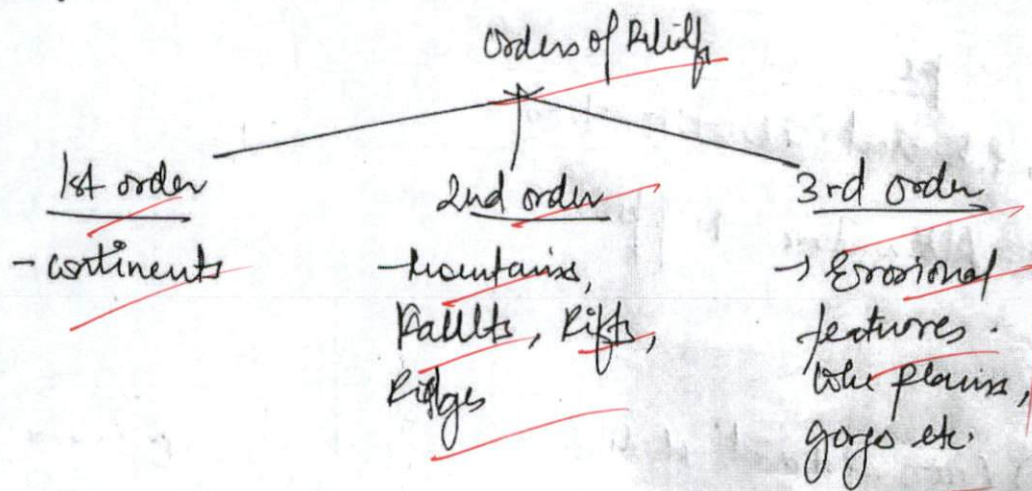 Orders of Relief
1st order
- continents
2nd order
- Mountains,
Faults, Rifts,
Ridges
3rd order
→ Errosional
features.
like plains,
gorges etc.